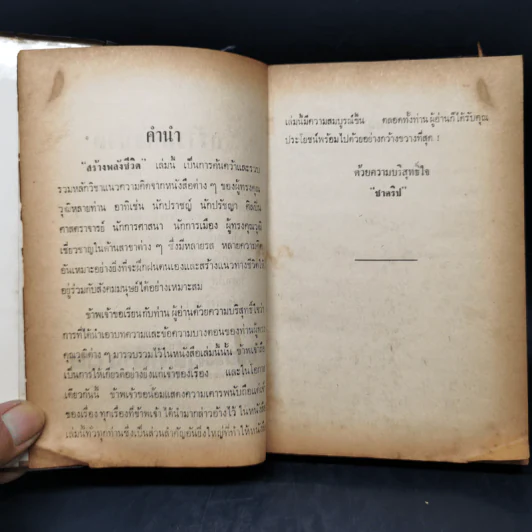 คำนำ
"สร้างพลังชีวิต" เล่มนี้ เป็นการค้นคว้าและรวบ
รวมหลักวิชาแนวความคิดจากหนังสือต่าง ๆ ของผู้ทรงคุณ
วุฒิหลายท่าน อาทิเช่น นักปราชญ์ นักปรัชญา ศิลปิน
ศาสตราจารย์ นักการศาสนา นักการเมือง ผู้ทรงคุณวุฒิ
เชี่ยวชาญในด้านสาขาต่าง ๆ ซึ่งมีหลายรส หลายความคิด
อันเหมาะอย่างยิ่งที่จะฝึกฝนตนเองและสร้างแนวทางชีวิตให้
อยู่ร่วมกับสังคมมนุษย์ได้อย่างเหมาะสม
ข้าพเจ้าขอเรียนกับท่านผู้อ่านด้วยความบริสุทธิ์ใจว่า
การที่ได้นำเอาบทความและข้อความบางตอนของท่านผู้ทรง
คุณวุฒิต่าง ๆ มารวบรวมไว้ในหนังสือเล่มนี้นั้น ข้าพเจ้าถือ
เป็นการให้เกียรติอย่างยิ่งแก่เจ้าของเรื่อง และในโอกาส
เดียวกันนี้ ข้าพเจ้าขอน้อมแสดงความเคารพนับถือแด่เจ้า
ของเรื่องทุกเรื่องที่ข้าพเจ้าได้นำมากล่าวอ้างไว้ ในหนังสือ
เล่มนี้ทั่วทุกท่านซึ่งเป็นส่วนสำคัญอันยิ่งใหญ่ที่ทำให้หนังสือ
เล่มนี้มีความสมบูรณ์ขึ้น ตลอดทั้งท่านผู้อ่านก็ได้รับคุณ
ประโยชน์พร้อมไปด้วยอย่างกว้างขวางที่สุด !
ด้วยความบริสุทธิ์ใจ
"ชาตรีป"